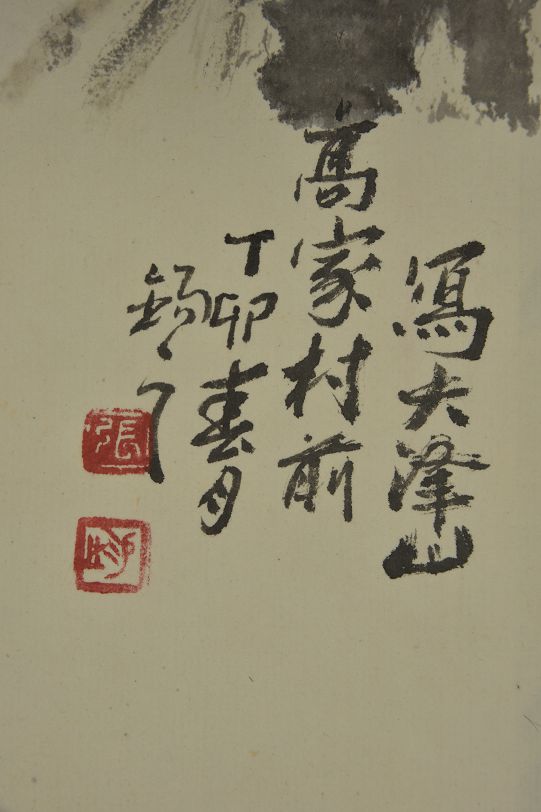 寫大澤山
高家村前
丁卯春月
張